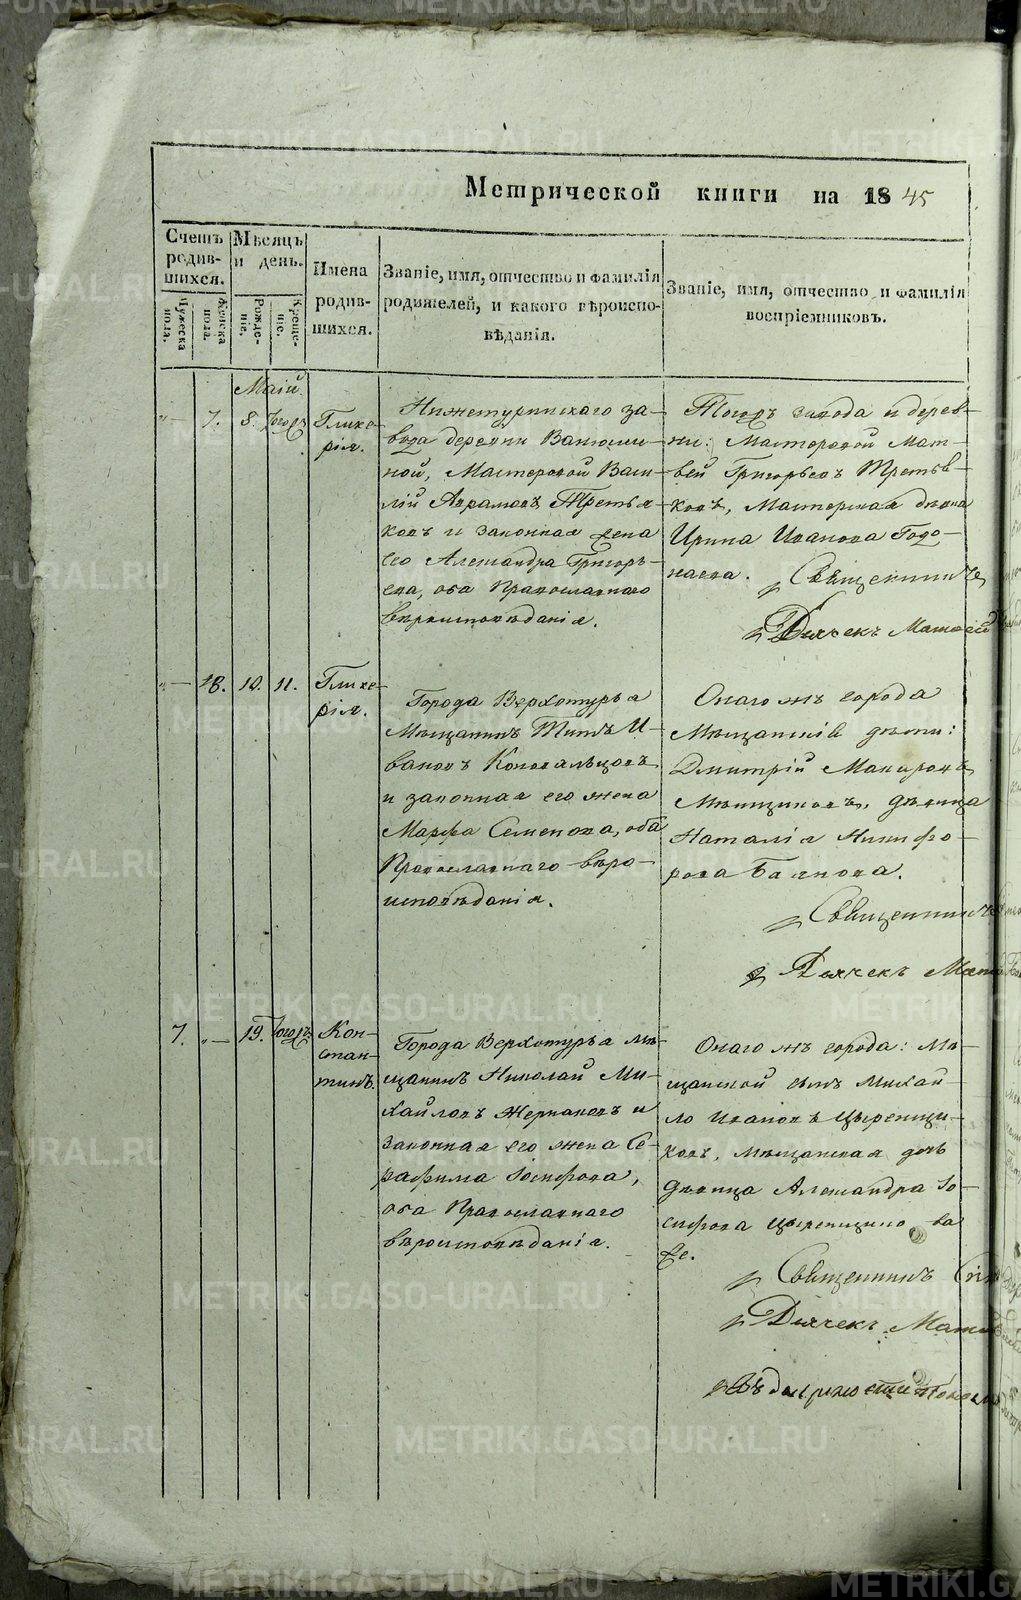 Метрической книги на 1845
Счетъ родив-шихся.
Мужеска пола.
Женска пола.
Мѣсяцъ и день.
Рожде-ніе.
Креще-ніе.
Имена родив-шихся.
Званіе, имя, отчество и фамилія
родителей, и какого вѣроиспо-
вѣданія.
Званіе, имя, отчество и фамилія
воспріемниковъ.
Маій.
"— 7. 8. Тогожъ
Глике-
рія.
Нижетуринскаго за-
вода деревни
ной, Мастеровой Васи-
лій Аврамовъ Третья-
ковъ и законная жена
его Александра Григорь-
ева, оба Православнаго
вѣроисповѣданія.
Тогожъ завода и дерев-
ни: Мастеровой Мат-
вей Григорьевъ Третья-
ковъ, Мастерская дѣвка
Ирина Иванова
Священникъ
Дьячекъ Матвей
"— 18. 10. 11.
Глике-
рія.
Города Верхотурья
Мѣщанинъ Титъ И-
вановъ Коновальцовъ
и законная его жена
Марфа Семенова, оба
Православнаго вѣро-
исповѣданія.
Онаго жъ города
Мѣщанскія дѣти:
Дмитрій Макаровъ
дѣвица
Наталія Никифо-
рова Баянова.
Священникъ
Дьячекъ
7. "— 19. Тогожъ
Кон-
стан-
тинъ.
Города Верхотурья мѣ-
щанинъ Николай Ми-
хайловъ Жернаковъ и
законная его жена Се-
рафима Іосифова,
оба Православнаго
вѣроисповѣданія.
Онаго жъ города: Мѣ-
щанской сынъ Михай-
ло Ивановъ Цыренщи-
ковъ, Мѣщанская дочь
дѣвица Александра Іо-
сифова Цыренщико ва
же.
Священникъ
Дьячекъ
METRIKI.GASO-URAL.RU